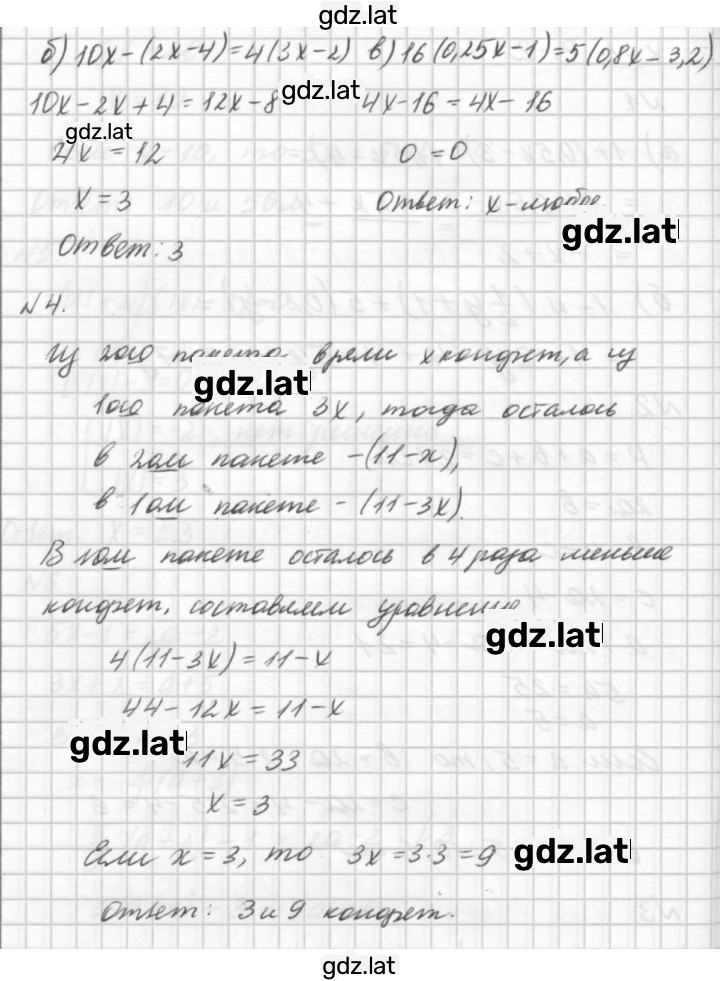 gdz.lat
б) 10x-(2x-4)=4(3x-2) в) 16(0,25x-1)=5(0,8x-3,2)
10x-2x+4=12x-8 gdz.lat 4x-16=4x-16
gdz.lat
4x=12 0=0
x=3 Ответ: x-любое
gdz.lat
Ответ: 3
№4.
Из 2ого пакета взяли x конфет, а из
gdz.lat
1ого пакета 3x, тогда осталось
в 2ом пакете -(11-x),
в 1ом пакете - (11-3x).
В 1ом пакете осталось в 4 раза меньше
конфет, составляем уравнение
gdz.lat
4(11-3x)=11-x
44-12x=11-x
gdz.lat
11x=33
x=3
Если x=3, то 3x=3·3=9 gdz.lat
Ответ: 3 и 9 конфет.
gdz.lat